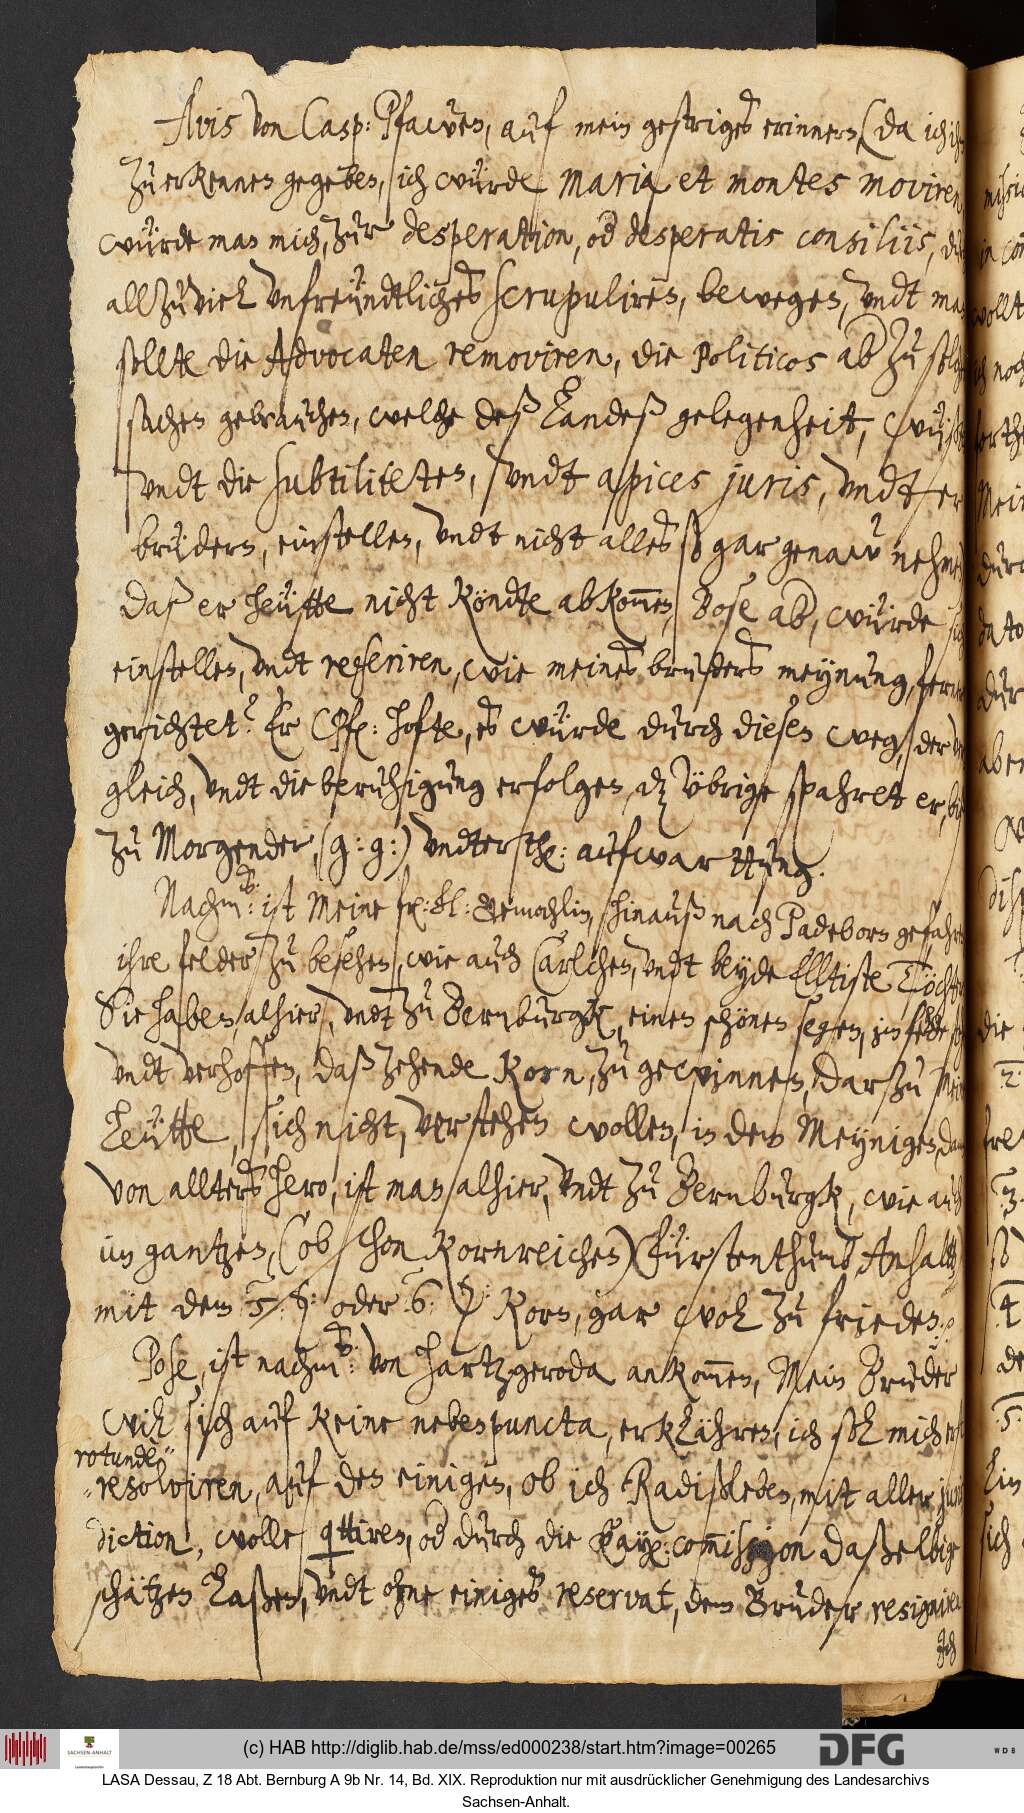 Avis von Casp: Pfawen, auf mein gestriges erinnern, (da ich ihm
zu erkennen gegeben, ich würde maria et montes moviren
würde man mich, zur desperation, od desperatis consiliis, durch
allzuviel unfreundtliches scrupuliren, bewegen, undt man
sollte die Advocaten removiren, die Politicos ab zu solchen
sachen gebrauchen, welche deß Landeß gelegenheit, wüsten
undt die subtiliteten, undt apices juris, undter
brüdern, einstellen, undt nicht alles so gar genaw nehmen
Daß er heütte nicht köndte abkommen, Pose ab, würde sich
einstellen, undt referiren, wie meines bruders meynung, ferner
gerichtet? Er CPf: hofte, es würde durch diesen weg, der ver
gleich, undt die beruhigung erfolgen, dz übrige spahret er, biß
zu Morgender, (g: g:) undterth: aufwarttung.
Nachm: ist Meine fr: hl: Gemahlin, hinauß nach Padeborn gefahren
ihre felder zu besehen, wie auch Carlchen, undt beyde Elltiste Töchter
Sie haben, alhier, undt zu Bernburgk, einen schönen segen, im felde
undt verhoffen, daß zehende Korn, zu gewinnen, darzu Meine
Leütte, sich nicht, verstehen wollen, in dem Meynigen, dann
von allters hero, ist man alhier, undt zu Bernburgk, wie auch
im gantzen, (ob schon Kornreichen) Fürstenthumb Anhaltt,
mit dem 5: oder 6: Korn, gar wol zu frieden.
Pose, ist nachm: von Hartzgeroda ankommen, Mein Bruder
wil sich auf keine nebenpuncta, erklähren, ich sol mich erst
rotunde
resolviren, auf den einigen, ob ich Radißleben, mit aller juris
diction, wolle qttiren, od durch die Kay: commission daßelbige
schätzen Laßen, undt ohne einiges reservat, dem Bruder resigniren
Ich
(c) HAB http://diglib.hab.de/mss/ed000238/start.htm?image=00265
SACHSEN-ANHALT
DFG
WDB
LASA Dessau, Z 18 Abt. Bernburg A 9b Nr. 14, Bd. XIX. Reproduktion nur mit ausdrücklicher Genehmigung des Landesarchivs
Sachsen-Anhalt.